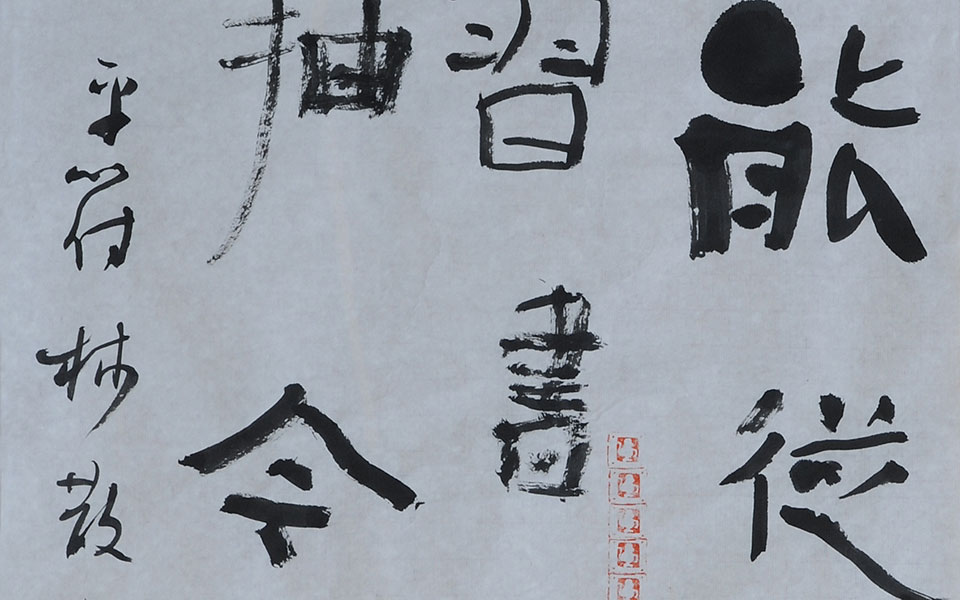 能從
習書
抽令
平符林散